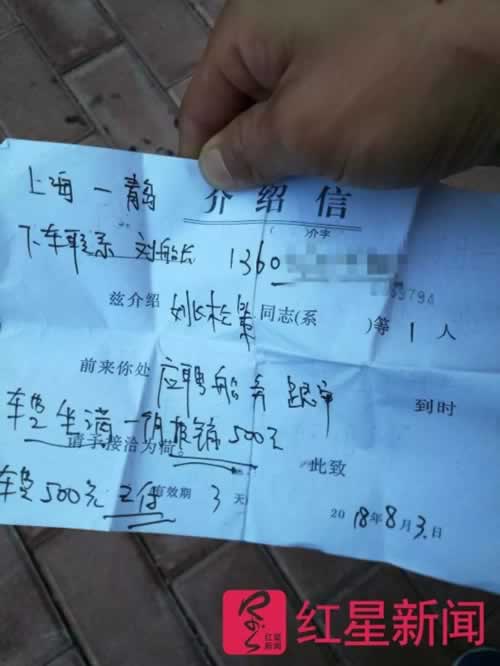 上海一青岛
介绍信
( )介字
下车联系 刘船长 1360
兹介绍 同志(系 )等 1 人
前来你处 应聘船务 跟单 到时
车费坐满一月报销500元
请予接洽为荷。
此致
车费500元 已付
有效期 3 天
2018年8月3日
红星新闻
红星新闻